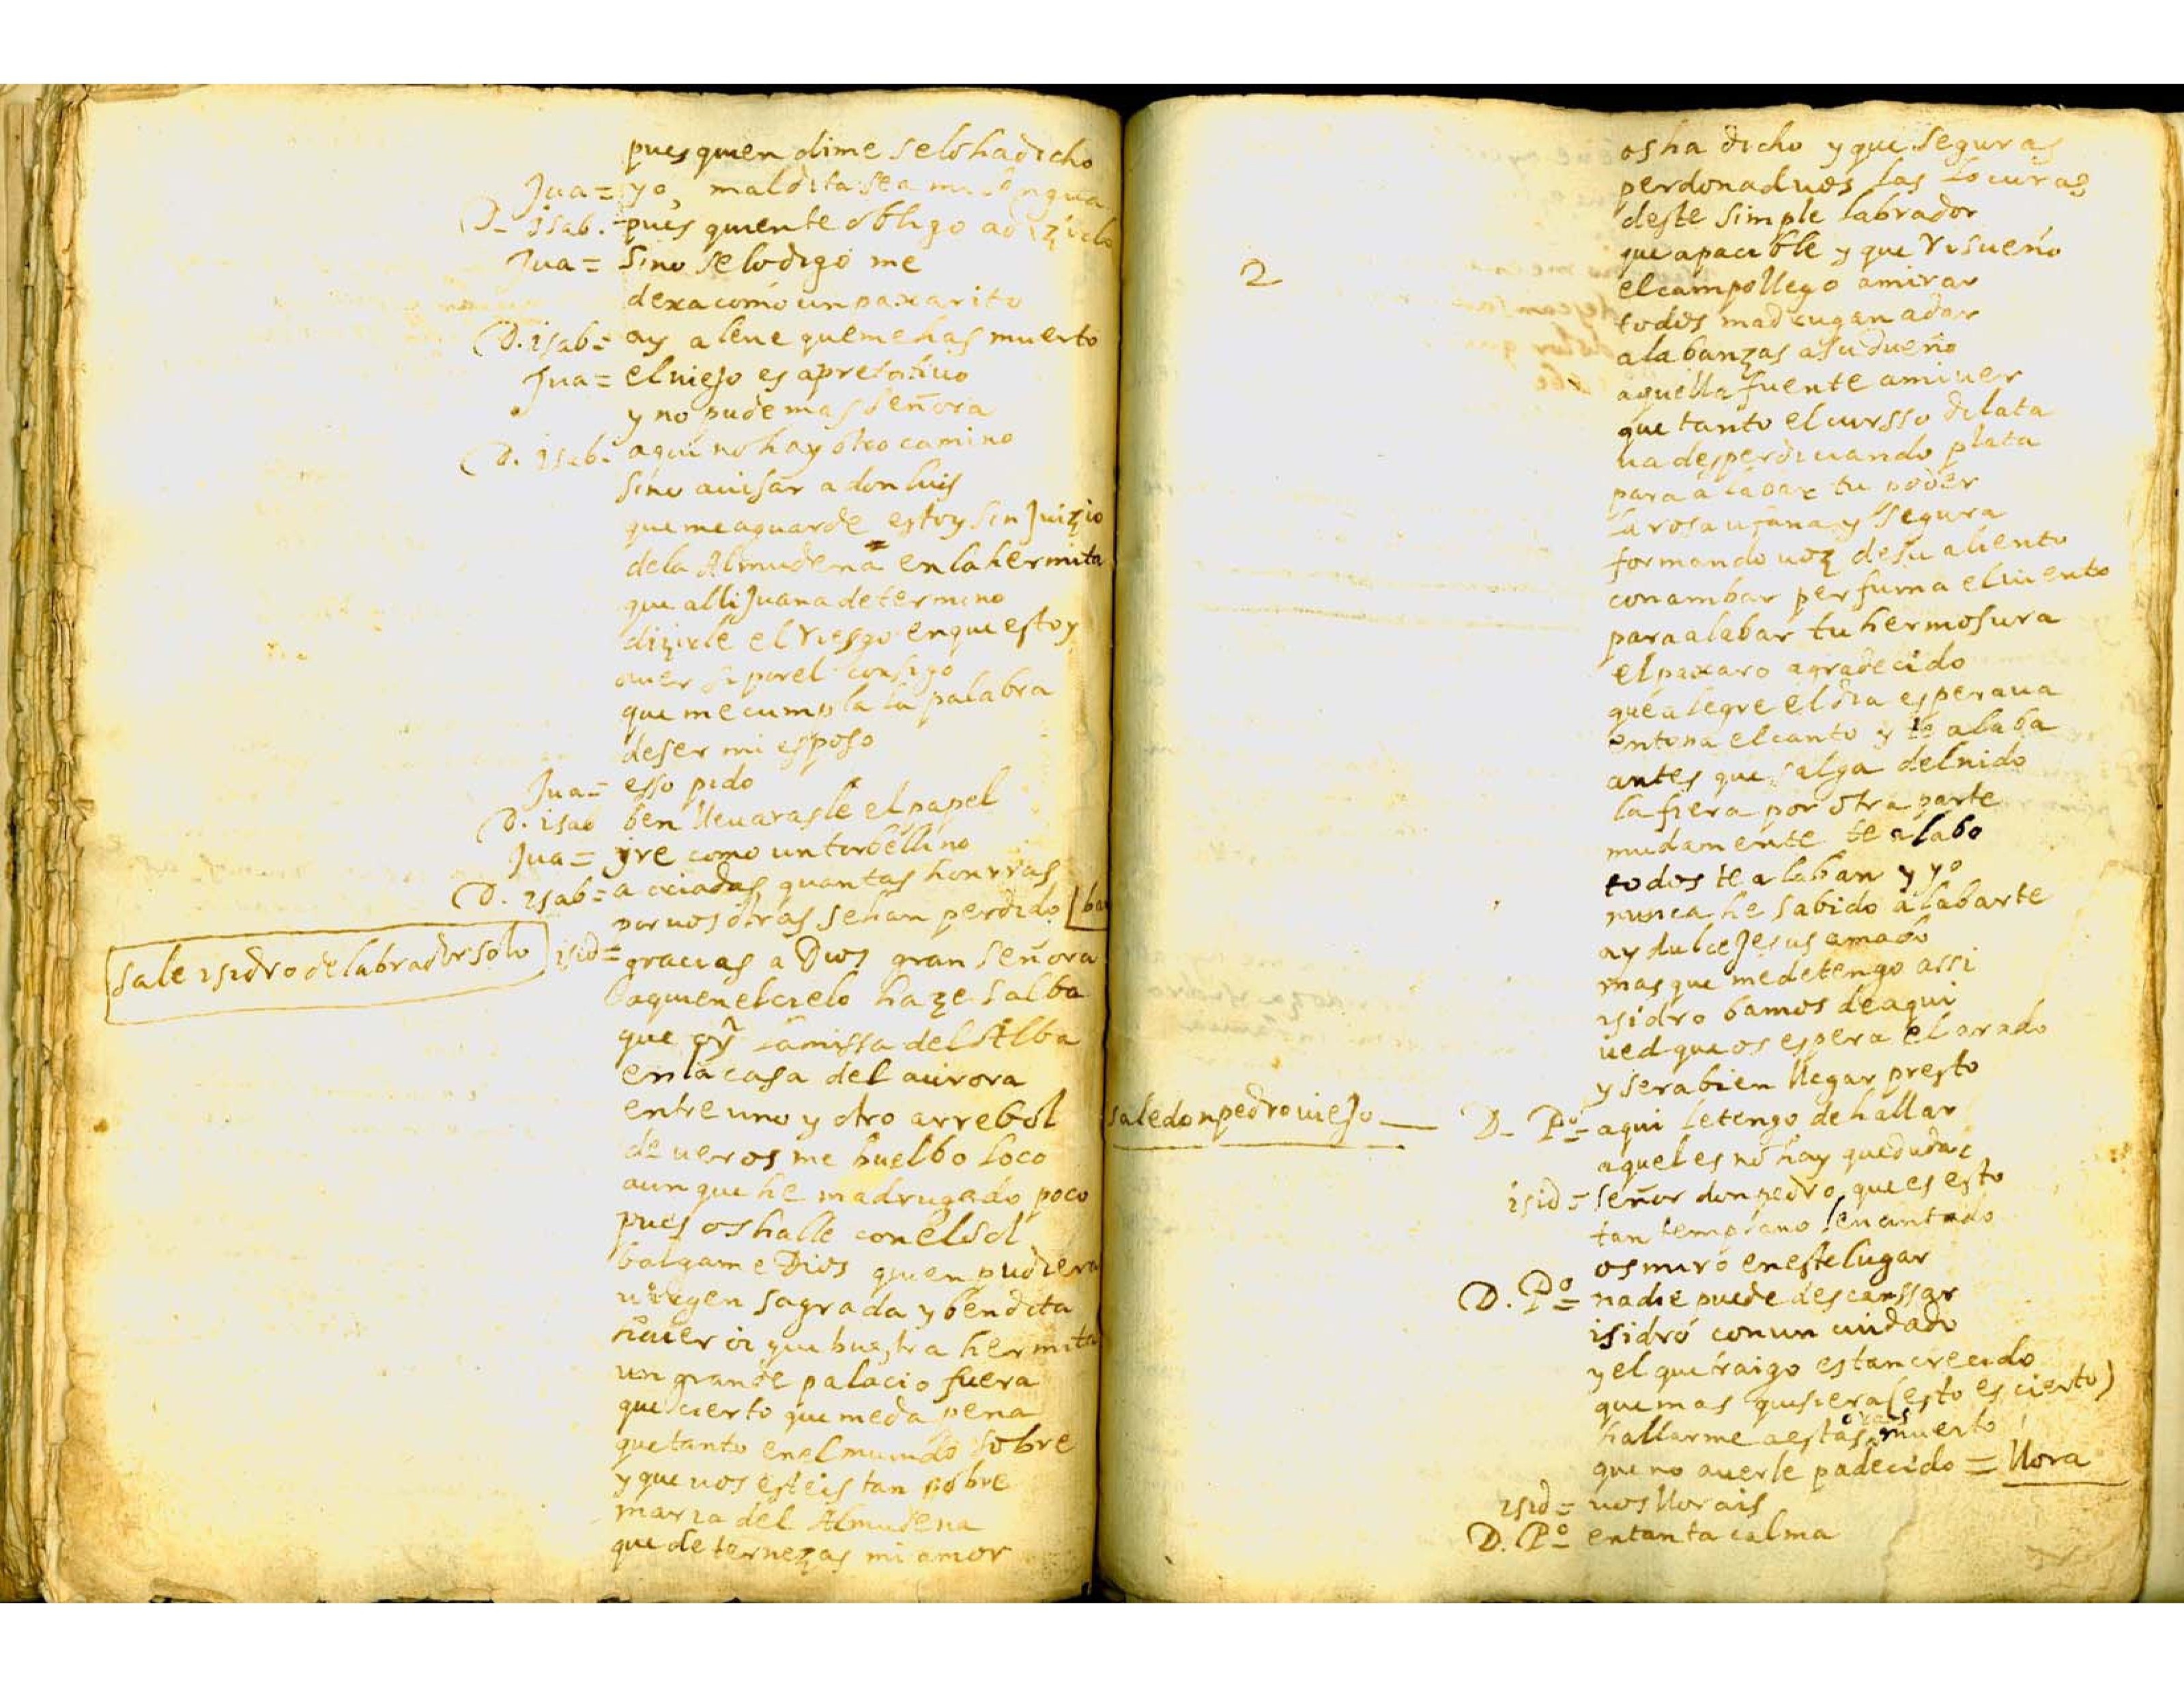 pues quien dime selo ha dicho
Jua = yo, maldita sea mi lengua
D. isab. = pues quiente obligo a dezirlo
Jua = sino selo digo me
dexa como un paxarito
D. isab = ay aleue que me has muerto
Jua = el uiejo es apretatiuo
y no pude mas señora
D. isab. aqui no hay otro camino
sino auisar a don luis
que me aguarde estoy sin Juizio
de la Almudena = en la hermita
que alli Juana determino
dizirle el riesgo en que estoy
auer si por el consigo
que me cumpla la palabra
de ser mi esposo
Jua = esso pido
D. isab ben lleuarasle el papel
Jua = yre como un torbellino
D. isab = a criadas quantas honrras
por uosotras sehan perdido
sale isidro de labrador solo
isid = gracias a Dios gran señora
aquien el cielo haze salba
que oy la missa del Alba
en la casa del aurora
entre uno y otro arrebol
de ueros me buelbo loco
aun que he madrugado poco
pues os halle con el sol
balgame Dios quien pudiera
uirgen sagrada y bendita
hazer que buestra hermita
un grande palacio fuera
que cierto que me da pena
que tanto en el mundo sobre
y que uos esteis tan pobre
maria del Almudena
que de ternezas mi amor
2
os ha dicho y que seguras
perdonad uos las locuras
deste simple labrador
que apacible y que risueño
el campo llego a mirar
todos madrugan a dar
alabanzas a su dueño
aquella fuente a mi uer
que tanto el cursso dilata
ua desperdiciando plata
para alabar tu poder
la rosa ufana y segura
formando uoz de su aliento
con ambar perfuma el uiento
para alabar tu hermosura
el paxaro agradecido
que alegre el dia esperaua
entona el canto y te alaba
antes que salga del nido
la fiera por otra parte
mudamente te alabo
todos te alaban y yo
nunca he sabido alabarte
ay dulce Jesus amado
mas que me detengo assi
isidro bamos de aqui
ued que os espera el arado
y sera bien llegar presto
sale don pedro uiejo
D. Po = aqui le tengo de hallar
aquel es no hay que dudar
isid = señor don pedro que es esto
tan temprano leuantado
os miro en este lugar
D. Po = nadie puede descanssar
isidro con un cuidado
y el que traigo es tan crecido
que mas quisiera (esto es cierto)
hallarme a estas oras muerto
que no auerle padecido = llora
isid = uos llorais
D. Po en tanta calma